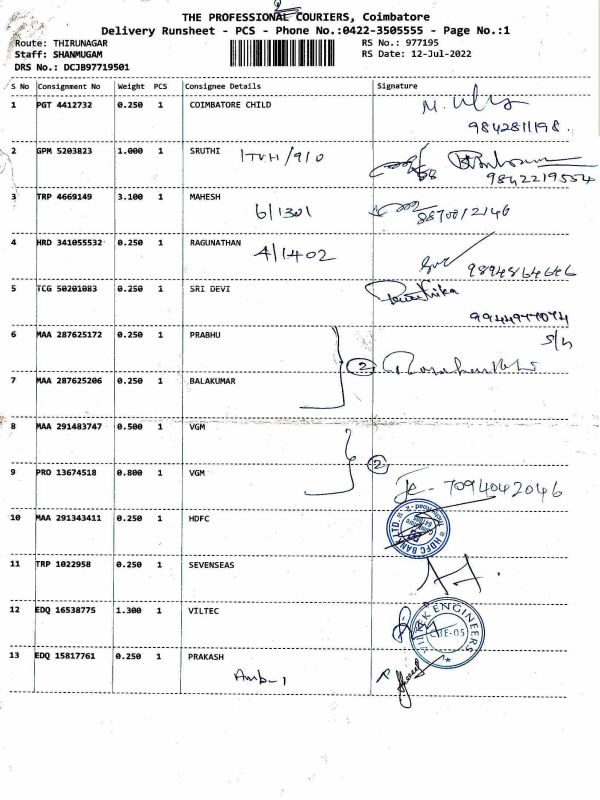 THE PROFESSIONAL COURIERS, Coimbatore
Delivery Runsheet - PCS - Phone No.:0422-3505555 - Page No.:1
Route: THIRUNAGAR RS No.: 977195
Staff: SHANMUGAM RS Date: 12-Jul-2022
DRS No.: DCJB97719501
S No Consignment No Weight PCS Consignee Details Signature
1 PGT 4412732 0.250 1 COIMBATORE CHILD
9842811198.
2 GPM 5203823 1.000 1 SRUTHI
9842219554
3 TRP 4669149 3.100 1 MAHESH
6/1301
4 HRD 341055532 0.250 1 RAGUNATHAN
4/1402
9894864646
5 TCG 50201083 0.250 1 SRI DEVI
9944977074
6 MAA 287625172 0.250 1 PRABHU
2
7 MAA 287625206 0.250 1 BALAKUMAR
8 MAA 291483747 0.500 1 VGM
2
9 PRO 13674518 0.800 1 VGM
7094042046
10 MAA 291343411 0.250 1 HDFC
HDFC BANK LTD
11 TRP 1022958 0.250 1 SEVENSEAS
12 EDQ 16538775 1.300 1 VILTEC
ENGINEERS
CBE-05
13 EDQ 15817761 0.250 1 PRAKASH